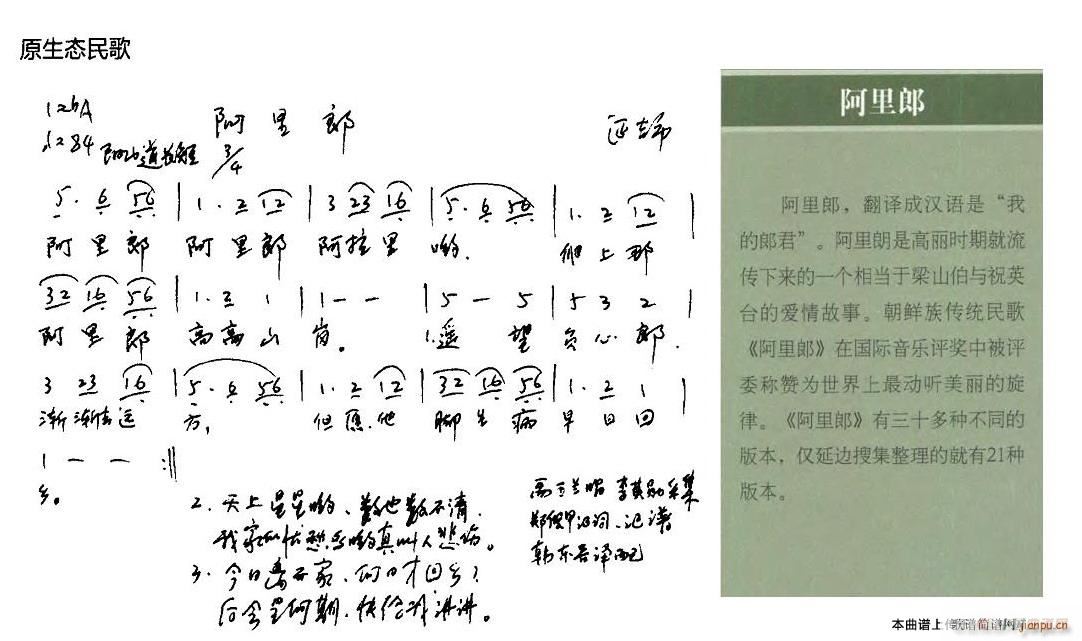 原生态民歌
1=bA
阿里郎
3/4
5. 6 56 | 1. 2 12 | 3 23 16 | 5. 6 56 | 1. 2 12 |
阿里郎 阿里郎 阿拉里 哟. 爬上那
32 16 56 | 1. 2 1 | 1 - - | 5 - 5 | 5 3 2 |
阿里郎 高高山岗。 1.遥望负心郎.
3 23 16 | 5. 6 56 | 1. 2 12 | 32 16 56 | 1. 2 1 |
渐渐去远方, 但愿他脚生病早日回
1 - - :||
乡。
2. 天上星星哟、数也数不清.
我家的忧愁哟真叫人悲伤。
3. 今日离开家.何日才回乡?
后会是何期.快给我讲讲。
采集
词、记谱
韩东吾译配
阿里郎
阿里郎，翻译成汉语是“我
的郎君”。阿里朗是高丽时期就流
传下来的一个相当于梁山伯与祝英
台的爱情故事。朝鲜族传统民歌
《阿里郎》在国际音乐评奖中被评
委称赞为世界上最动听美丽的旋
律。《阿里郎》有三十多种不同的
版本，仅延边搜集整理的就有21种
版本。
本曲谱上传
简谱网 jianpu.cn